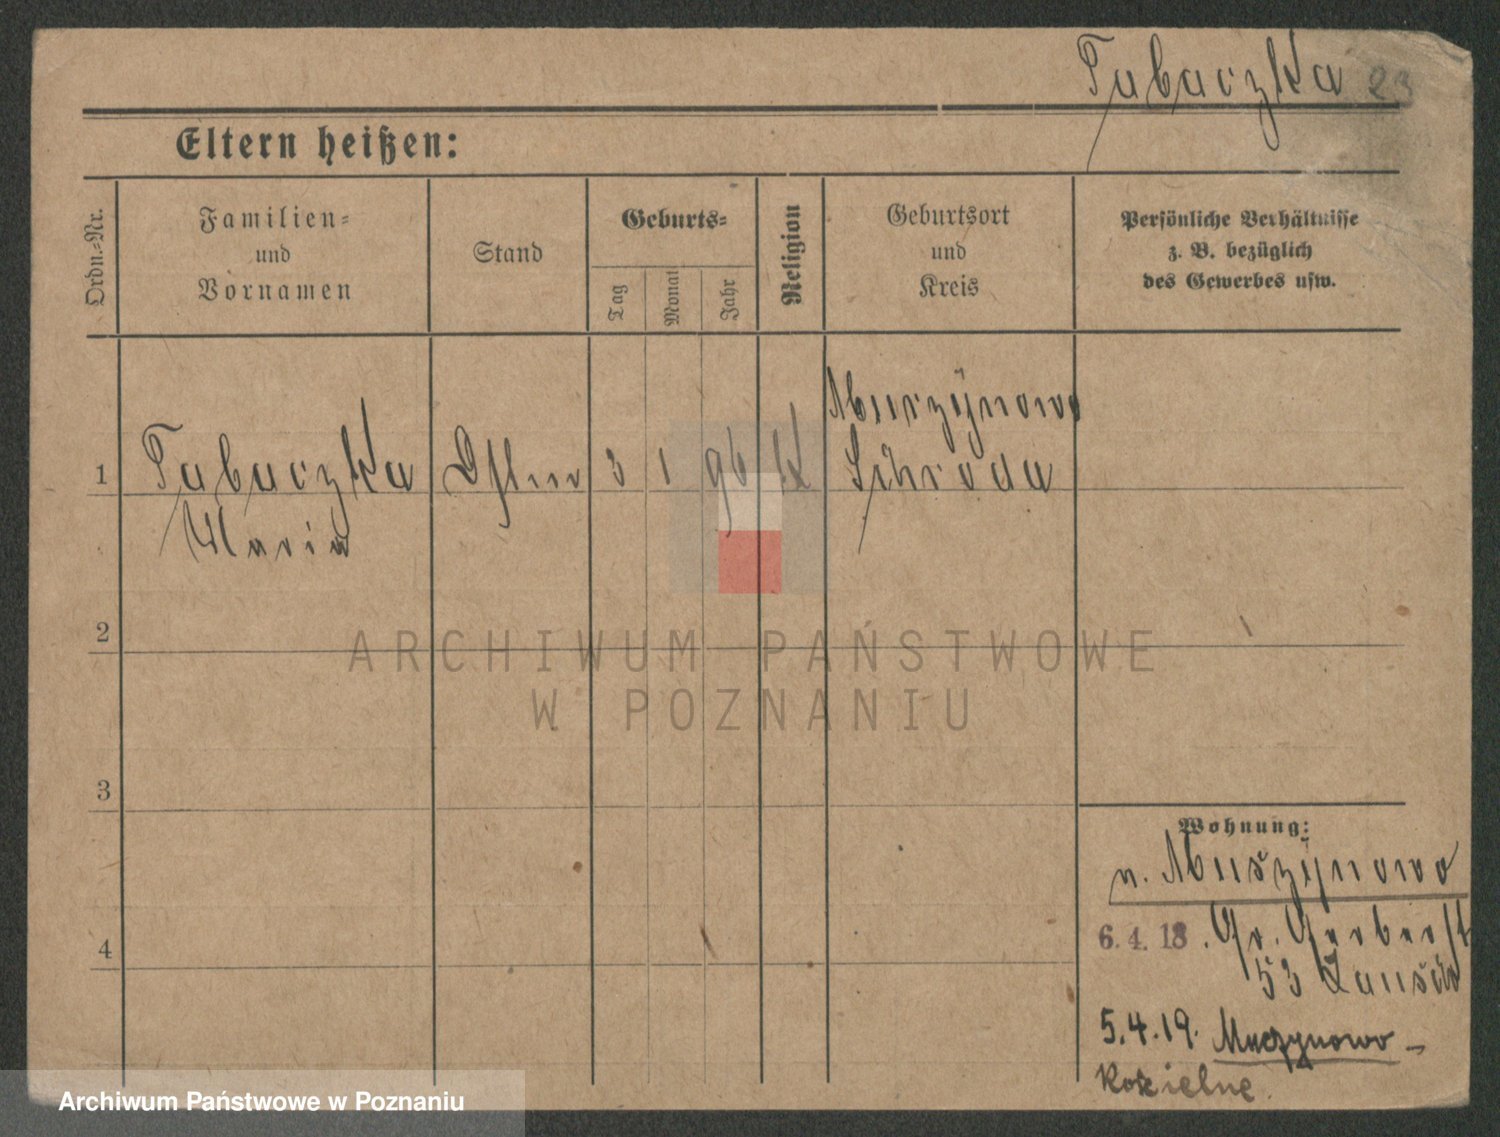 Tabaczka 23
Eltern heißen:
Ordn.-Nr.
Familien-
und
Vornamen
Stand
Geburts-
Tag
Monat
Jahr
Religion
Geburtsort
und
Kreis
Persönliche Verhältnisse
z. B. bezüglich
des Gewerbes usw.
1
Tabaczka
Maria
3 1 96 K
Murzynowo
Schroda
2
3
4
Wohnung:
n. Muszynowo
6. 4. 18. Gr. Gerberst
53
5.4.19. Muczynowo -
Kościelne.
ARCHIWUM PAŃSTWOWE
W POZNANIU
Archiwum Państwowe w Poznaniu